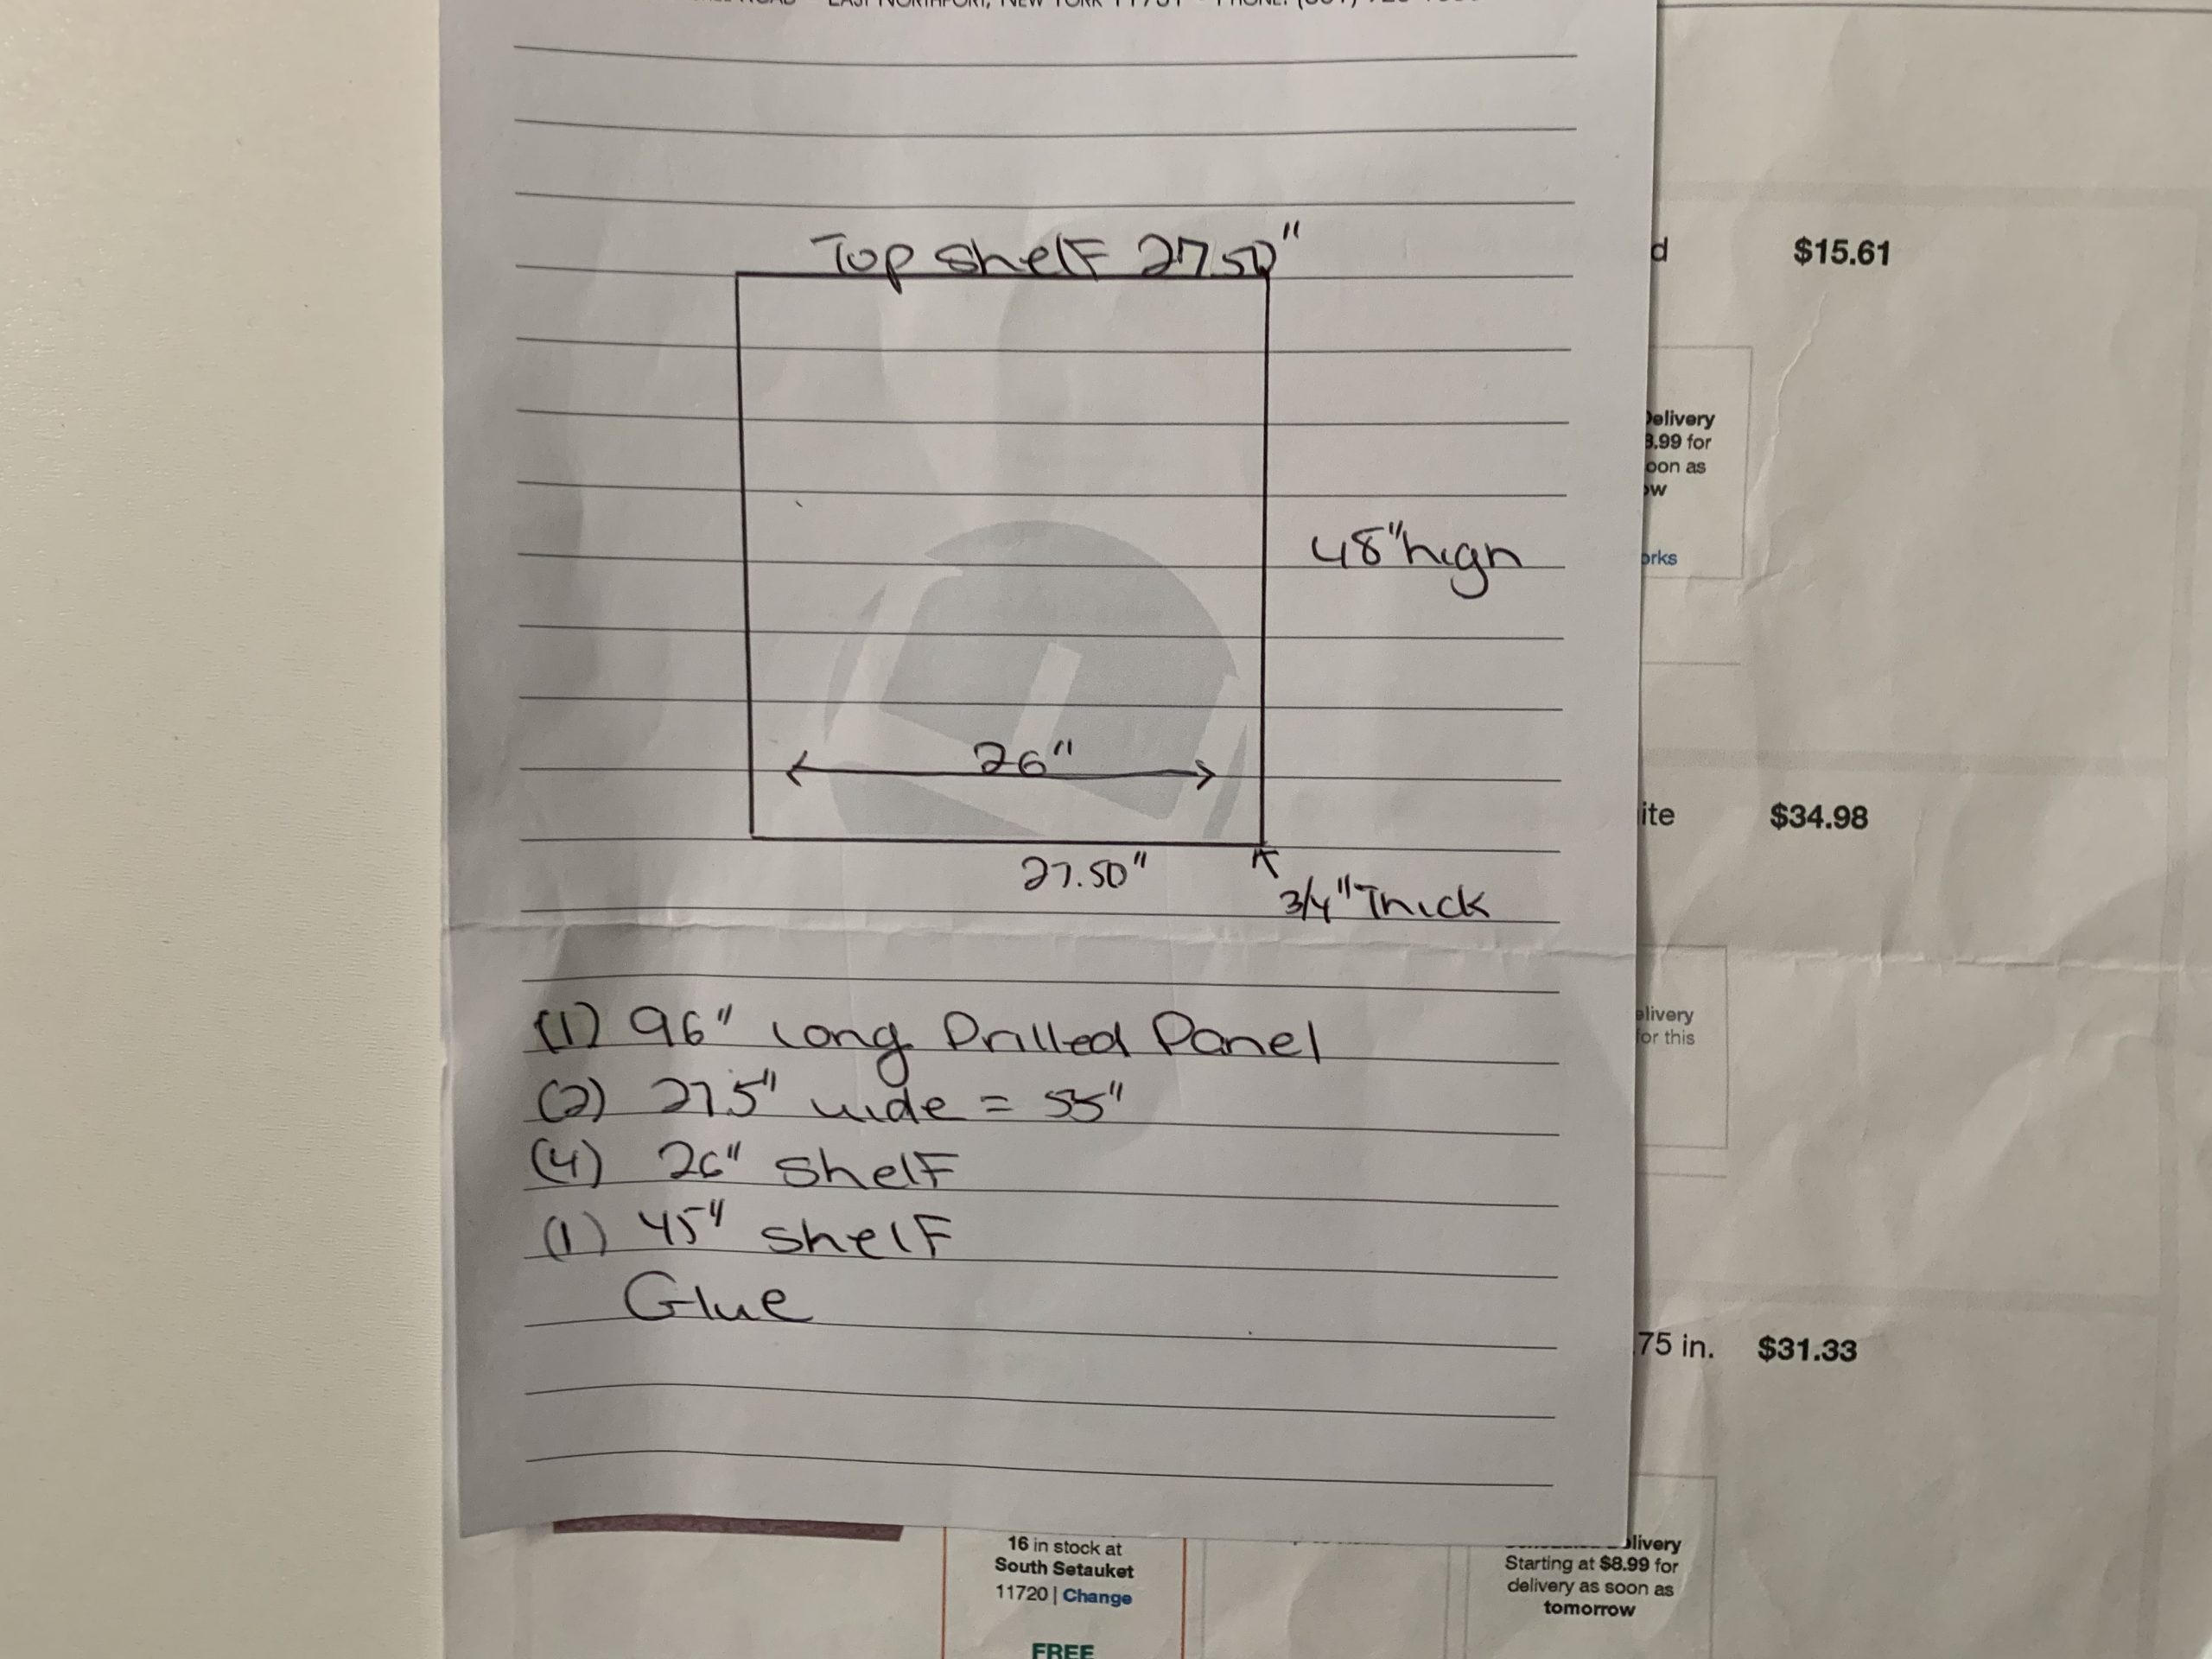 EAST NORTHPORT, NEW YORK
Top shelf 27.50"
d $15.61
Delivery
for
oon as
ow
48" high
orks
26"
ite $34.98
27.50"
3/4" Thick
elivery
for this
(1) 96" Long Drilled Panel
(2) 27.5" wide = 55"
(4) 26" shelf
(1) 45" shelf
Glue
.75 in. $31.33
16 in stock at
South Setauket
11720 | Change
FREE
livery
Starting at $8.99 for
delivery as soon as
tomorrow